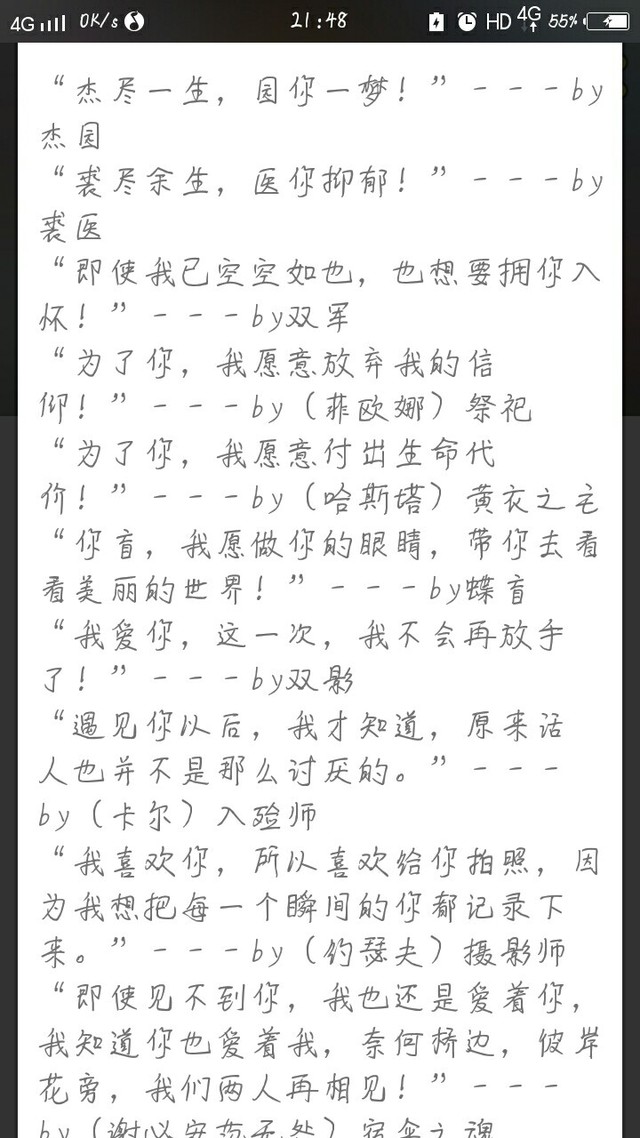 4G 0K/s 21:48 HD 4G 55%
“杰尽一生，园你一梦！”---by
杰园
“裘尽余生，医你抑郁！”---by
裘医
“即使我已空空如也，也想要拥你入
怀！”---by双军
“为了你，我愿意放弃我的信
仰！”---by（菲欧娜）祭祀
“为了你，我愿意付出生命代
价！”---by（哈斯塔）黄衣之主
“你盲，我愿做你的眼睛，带你去看
看美丽的世界！”---by蝶盲
“我爱你，这一次，我不会再放手
了！”---by双影
“遇见你以后，我才知道，原来活
人也并不是那么讨厌的。”---
by（卡尔）入殓师
“我喜欢你，所以喜欢给你拍照，因
为我想把每一个瞬间的你都记录下
来。”---by（约瑟夫）摄影师
“即使见不到你，我也还是爱着你，
我知道你也爱着我，奈何桥边，彼岸
花旁，我们两人再相见！”---
by（谢必安范无咎）宿伞之魂